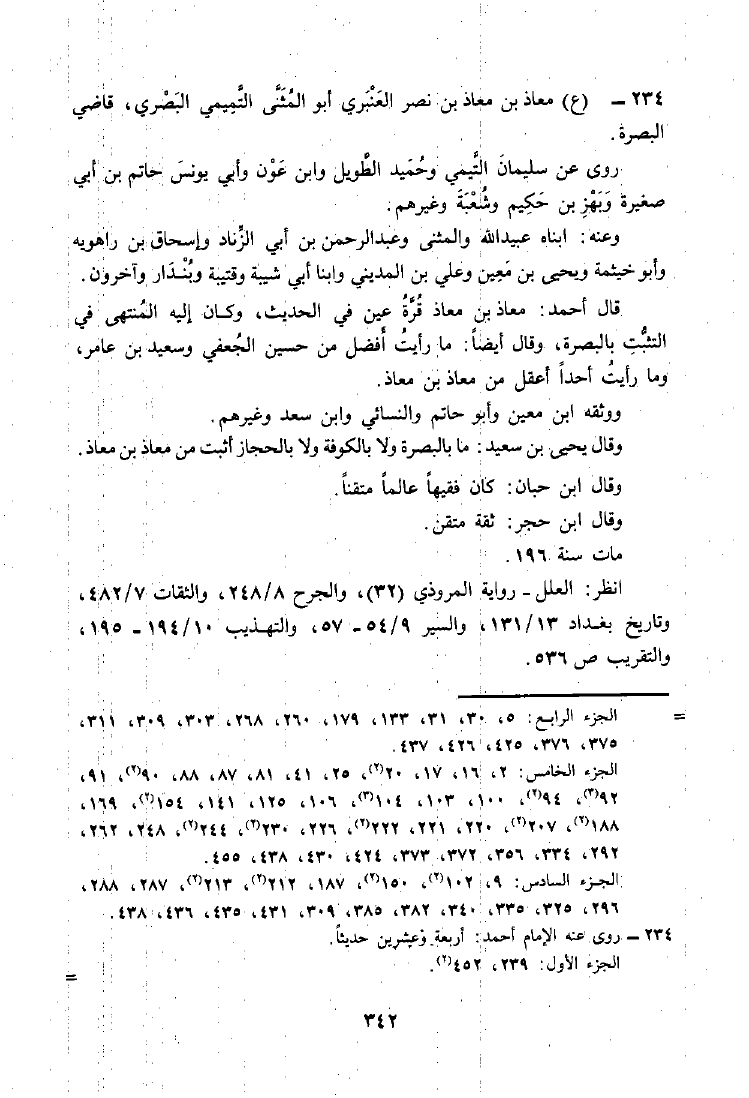 ٢٣٤ ـ (ع) معاذ بن معاذ بن نصر العَنْبَري أبو المُثَنَّى التَّمِيمي البَصْري، قاضي
البصرة.
روى عن سليمانَ التَّيمي وحُمَيد الطَّويل وابن عَوْن وأبي يونسَ حاتم بن أبي
صغيرة وَبَهْزِ بن حَكِيم وشُعْبَةَ وغيرهم.
وعنه: ابناه عبيدالله والمثنى وعبدالرحمن بن أبي الزِّناد وإسحاق بن راهويه
وأبو خيثمة ويحيى بن مَعِين وعلي بن المديني وابنا أبي شيبة وقتيبة وبُنْدَار وآخرون.
قال أحمد: معاذ بن معاذ قُرَّةُ عين في الحديث، وكان إليه المُنتهى في
التثبُّتِ بالبصرة، وقال أيضاً: ما رأيتُ أفضل من حسين الجُعفي وسعيد بن عامر،
وما رأيتُ أحداً أعقل من معاذ بن معاذ.
ووثقه ابن معين وأبو حاتم والنسائي وابن سعد وغيرهم.
وقال يحيى بن سعيد: ما بالبصرة ولا بالكوفة ولا بالحجاز أثبت من معاذ بن معاذ.
وقال ابن حبان: كان فقيهاً عالماً متقناً.
وقال ابن حجر: ثقة متقن.
مات سنة ١٩٦.
انظر: العلل ـ رواية المروذي (٣٢)، والجرح ٢٤٨/٨، والثقات ٤٨٢/٧،
وتاريخ بغداد ١٣١/١٣، والسير ٥٤/٩ ـ ٥٧، والتهذيب ١٩٤/١٠ ـ ١٩٥،
والتقريب ص ٥٣٦.
= الجزء الرابع: ٥، ٣٠، ٣١، ١٣٣، ١٧٩، ٢٦٠، ٢٦٨، ٣٠٣، ٣٠٩، ٣١١،
٣٧٥، ٣٧٦، ٤٢٥، ٤٢٦، ٤٣٧.
الجزء الخامس: ٢، ١٦، ١٧، ٢٠(٢)، ٢٥، ٤١، ٨١، ٨٧، ٨٨، ٩٠(٢)، ٩١،
٩٢(٣)، ٩٤(٢)، ١٠٠، ١٠٣، ١٠٤(٣)، ١٠٦، ١٢٥، ١٤١، ١٥٤(٢)، ١٦٩،
١٨٨(٢)، ٢٠٧(٢)، ٢٢٠، ٢٢١، ٢٢٢(٢)، ٢٢٦، ٢٣٠(٢)، ٢٤٤(٢)، ٢٤٨، ٢٦٢،
٢٩٢، ٣٣٤، ٣٥٦، ٣٧٢، ٣٧٣، ٤٢٤، ٤٣٠، ٤٣٨، ٤٥٥.
الجزء السادس: ٩، ١٠٢(٢)، ١٥٠(٢)، ١٨٧، ٢١٢(٢)، ٢١٣(٢)، ٢٨٧، ٢٨٨،
٢٩٦، ٣٢٥، ٣٣٥، ٣٤٠، ٣٨٢، ٣٨٥، ٣٠٩، ٤٣١، ٤٣٥، ٤٣٦، ٤٣٨.
٢٣٤ ـ روى عنه الإمام أحمد: أربعة وعشرين حديثاً.
الجزء الأول: ٢٣٩، ٤٥٢(٢).
=
٣٤٢